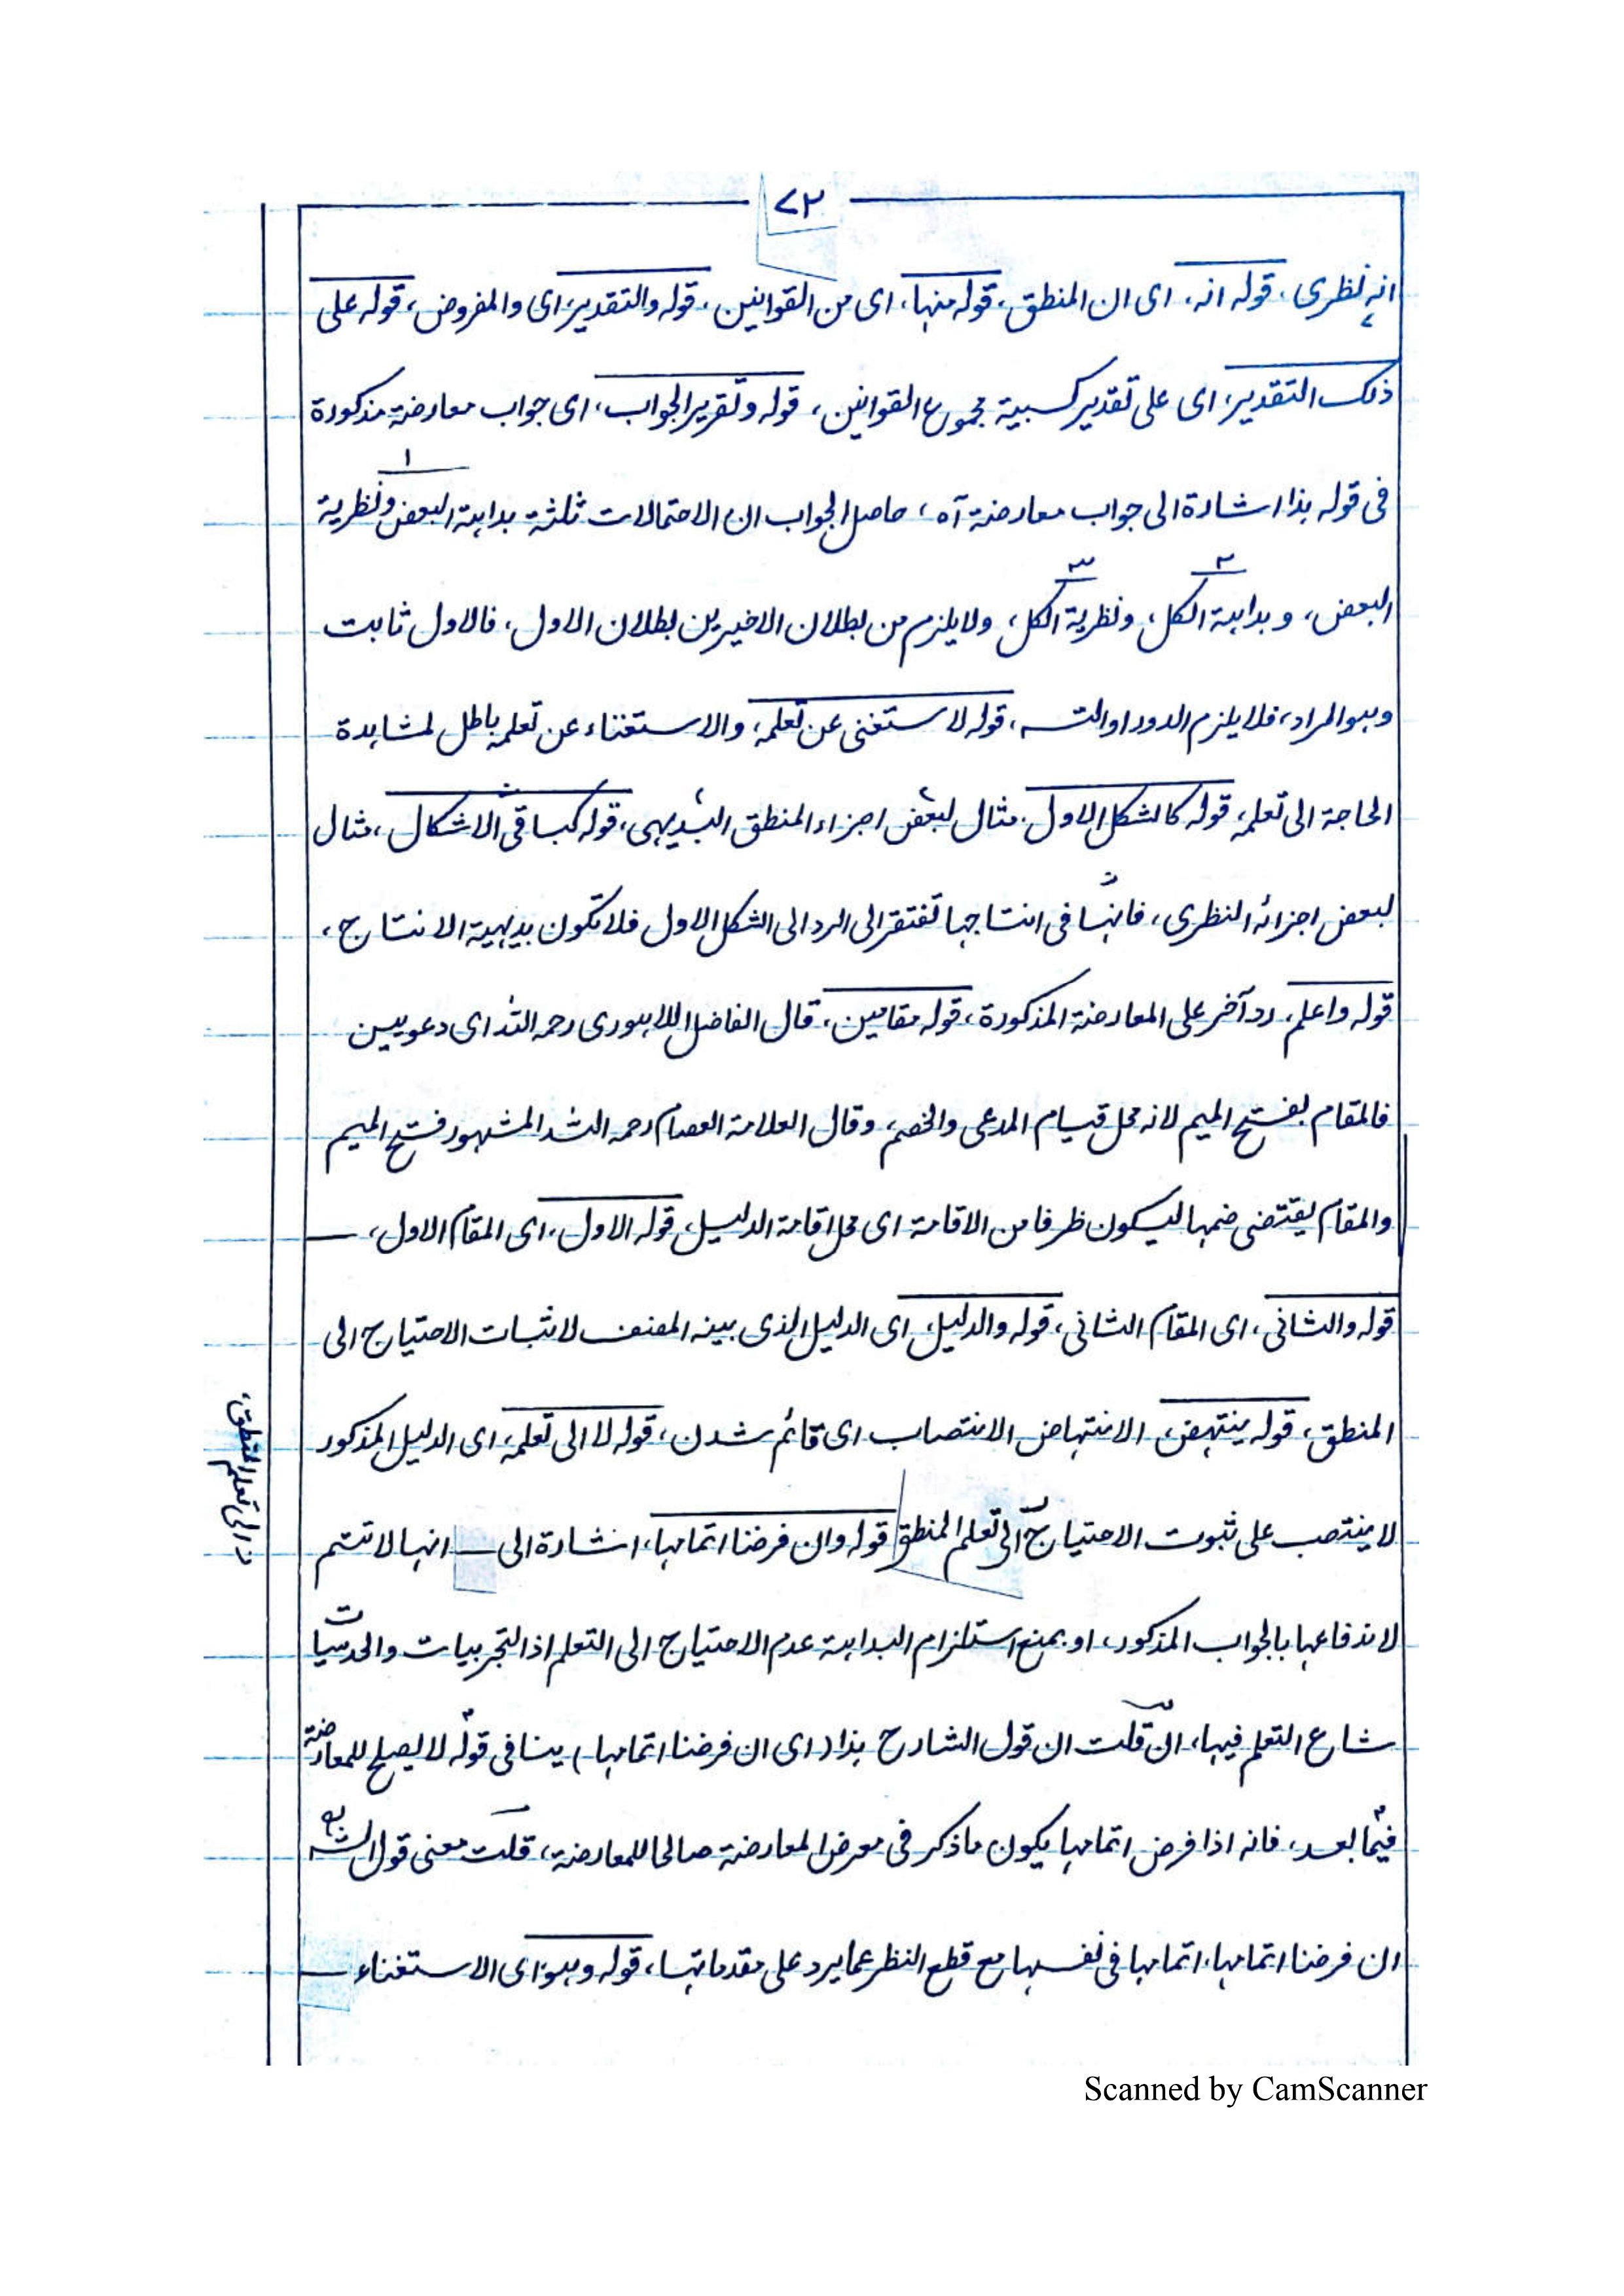 ٧٢
انه نظرى، قوله انه، اى ان المنطق، قوله منها، اى من القوانين، قوله والتقدير، اى والمفروض، قوله على
ذلك التقدير، اى على تقدير كسبية مجموع القوانين، قوله وتقرير الجواب، اى جواب معارضة مذكورة
١
فى قوله هذا اشارة الى جواب معارضة آه، حاصل الجواب ان الاحتمالات ثلثة بداهة البعض ونظرية
٢ ٣
البعض، وبداهة الكل، ونظرية الكل، ولا يلزم من بطلان الاخيرين بطلان الاول، فالاول ثابت
وهو المراد، فلا يلزم الدور او التسـ، قوله لاستغنى عن تعلمه، والاستغناء عن تعلمه باطل لمشاهدة
الحاجة الى تعلمه، قوله كالشكل الاول، مثال لبعض اجزاء المنطق البديهى، قوله كباقى الاشكال، مثال
لبعض اجزائه النظرى، فانها فى انتاجها تفتقر الى الرد الى الشكل الاول فلا تكون بديهية الانتاج،
قوله واعلم، رد آخر على المعارضة المذكورة، قوله مقامين، قال الفاضل اللاهورى رحمه الله اى دعويين
فالمقام بفتح الميم لانه محل قيام المدعى والخصم، وقال العلامة العصام رحمه الله المشهور فتح الميم
والمقام يقتضى ضمها ليكون ظرفا من الاقامة اى محل اقامة الدليل، قوله الاول، اى المقام الاول،
قوله والثانى، اى المقام الثانى، قوله والدليل، اى الدليل الذى بينه المصنف لاثبات الاحتياج الى
المنطق، قوله ينتهض، الانتهاض الانتصاب اى قائم شدن، قوله لا الى تعلمه، اى الدليل المذكور
لا ينتصب على ثبوت الاحتياج الى تعلم المنطق قوله وان فرضنا اتمامها، اشارة الى انها لا تتم
لاندفاعها بالجواب المذكور، او بمنع استلزام البداهة عدم الاحتياج الى التعلم اذ التجربيات والحدسيات
شاع التعلم فيها، ان قلت ان قول الشارح هذا (اى ان فرضنا اتمامها) ينافى قوله لا يصلح للمعارضة
فيما بعد، فانه اذا فرض اتمامها يكون ما ذكر فى معرض المعارضة صالحا للمعارضة، قلت معنى قول الشـ
ان فرضنا اتمامها، اتمامها فى نفسها مع قطع النظر عما يرد على مقدماتها، قوله وهو، اى الاستغناء
الى تعلم المنطق،
Scanned by CamScanner